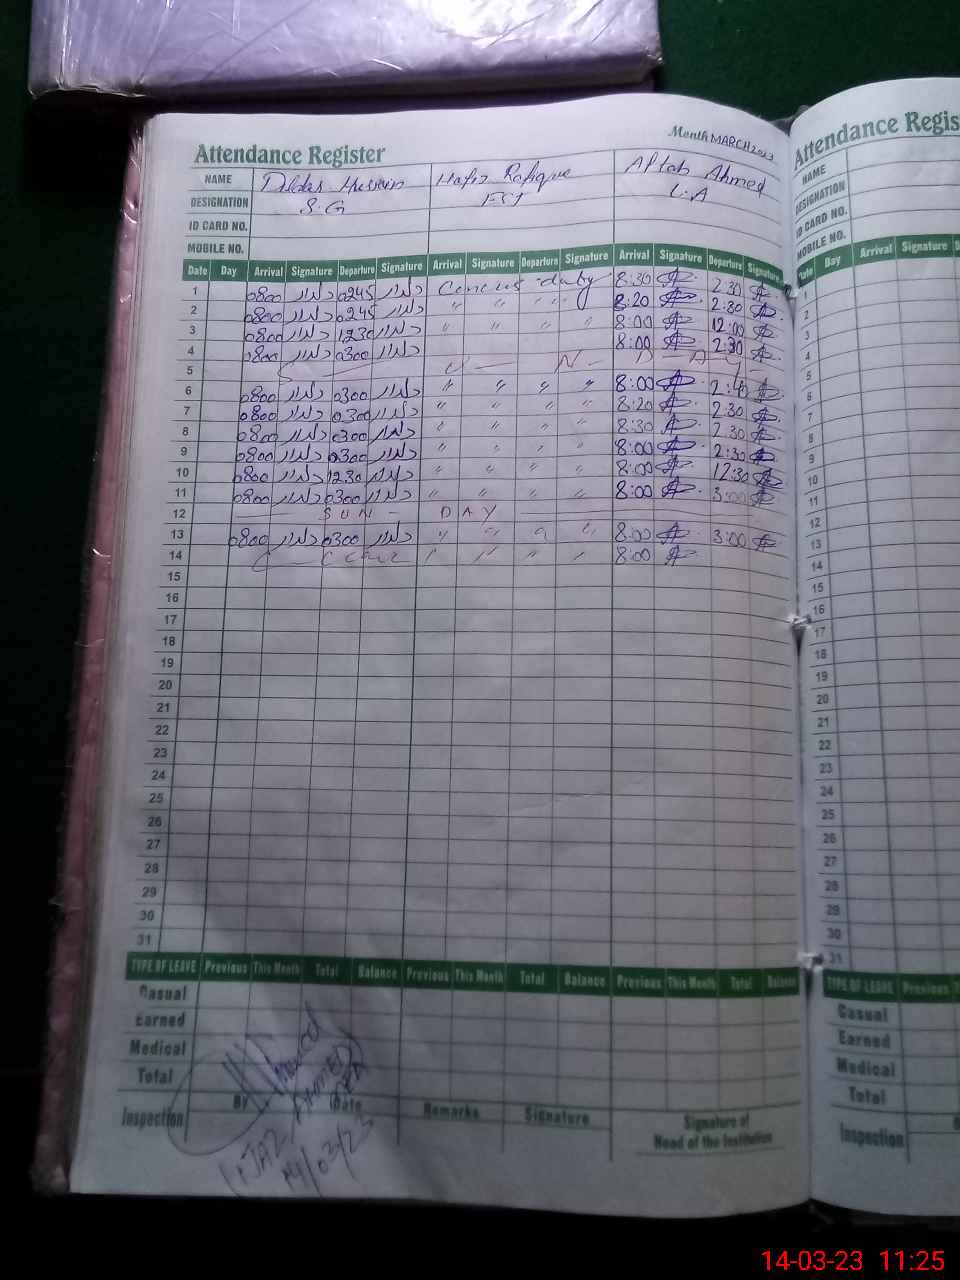 Month MARCH 2023
Attendance Register
Attendance Regis
NAME Dildar Hussain Hafiz Rafique Aftab Ahmed
DESIGNATION S.G EST L.A
ID CARD NO.
MOBILE NO.
NAME
DESIGNATION
ID CARD NO.
MOBILE NO.
Date Day Arrival Signature Departure Signature Arrival Signature Departure Signature Arrival Signature Departure Signature
Date Day Arrival Signature D
1 0800 دلدار 0245 دلدار Cencus duty 8:30 2:30
2 0800 دلدار 0245 دلدار " " " " 8:20 2:30
3 0800 دلدار 1230 دلدار " " " " 8:00 12:00
4 0800 دلدار 0300 دلدار 8:00 2:30
5 S U N D A Y
6 0800 دلدار 0300 دلدار " " " " 8:00 2:40
7 0800 دلدار 0300 دلدار " " " " 8:20 2:30
8 0800 دلدار 0300 دلدار " " " " 8:30 2:30
9 0800 دلدار 0300 دلدار " " " " 8:00 2:30
10 0800 دلدار 1230 دلدار " " " " 8:00 12:30
11 0800 دلدار 0300 دلدار " " " " 8:00 3:00
12 SUN - DAY
13 0800 دلدار 0300 دلدار " " " " 8:00 3:00
14 " " " " 8:00
15
16
17
18
19
20
21
22
23
24
25
26
27
28
29
30
31
1
2
3
4
5
6
7
8
9
10
11
12
13
14
15
16
17
18
19
20
21
22
23
24
25
26
27
28
29
30
31
TYPE OF LEAVE Previous This Month Total Balance Previous This Month Total Balance Previous This Month Total Balance
TYPE OF LEAVE Previous T
Casual
Earned
Medical
Total
Casual
Earned
Medical
Total
Inspection By Date Remarks Signature Signature of
Head of the Institution
Inspection
IJAZ AHMED
14/03/23
14-03-23 11:25